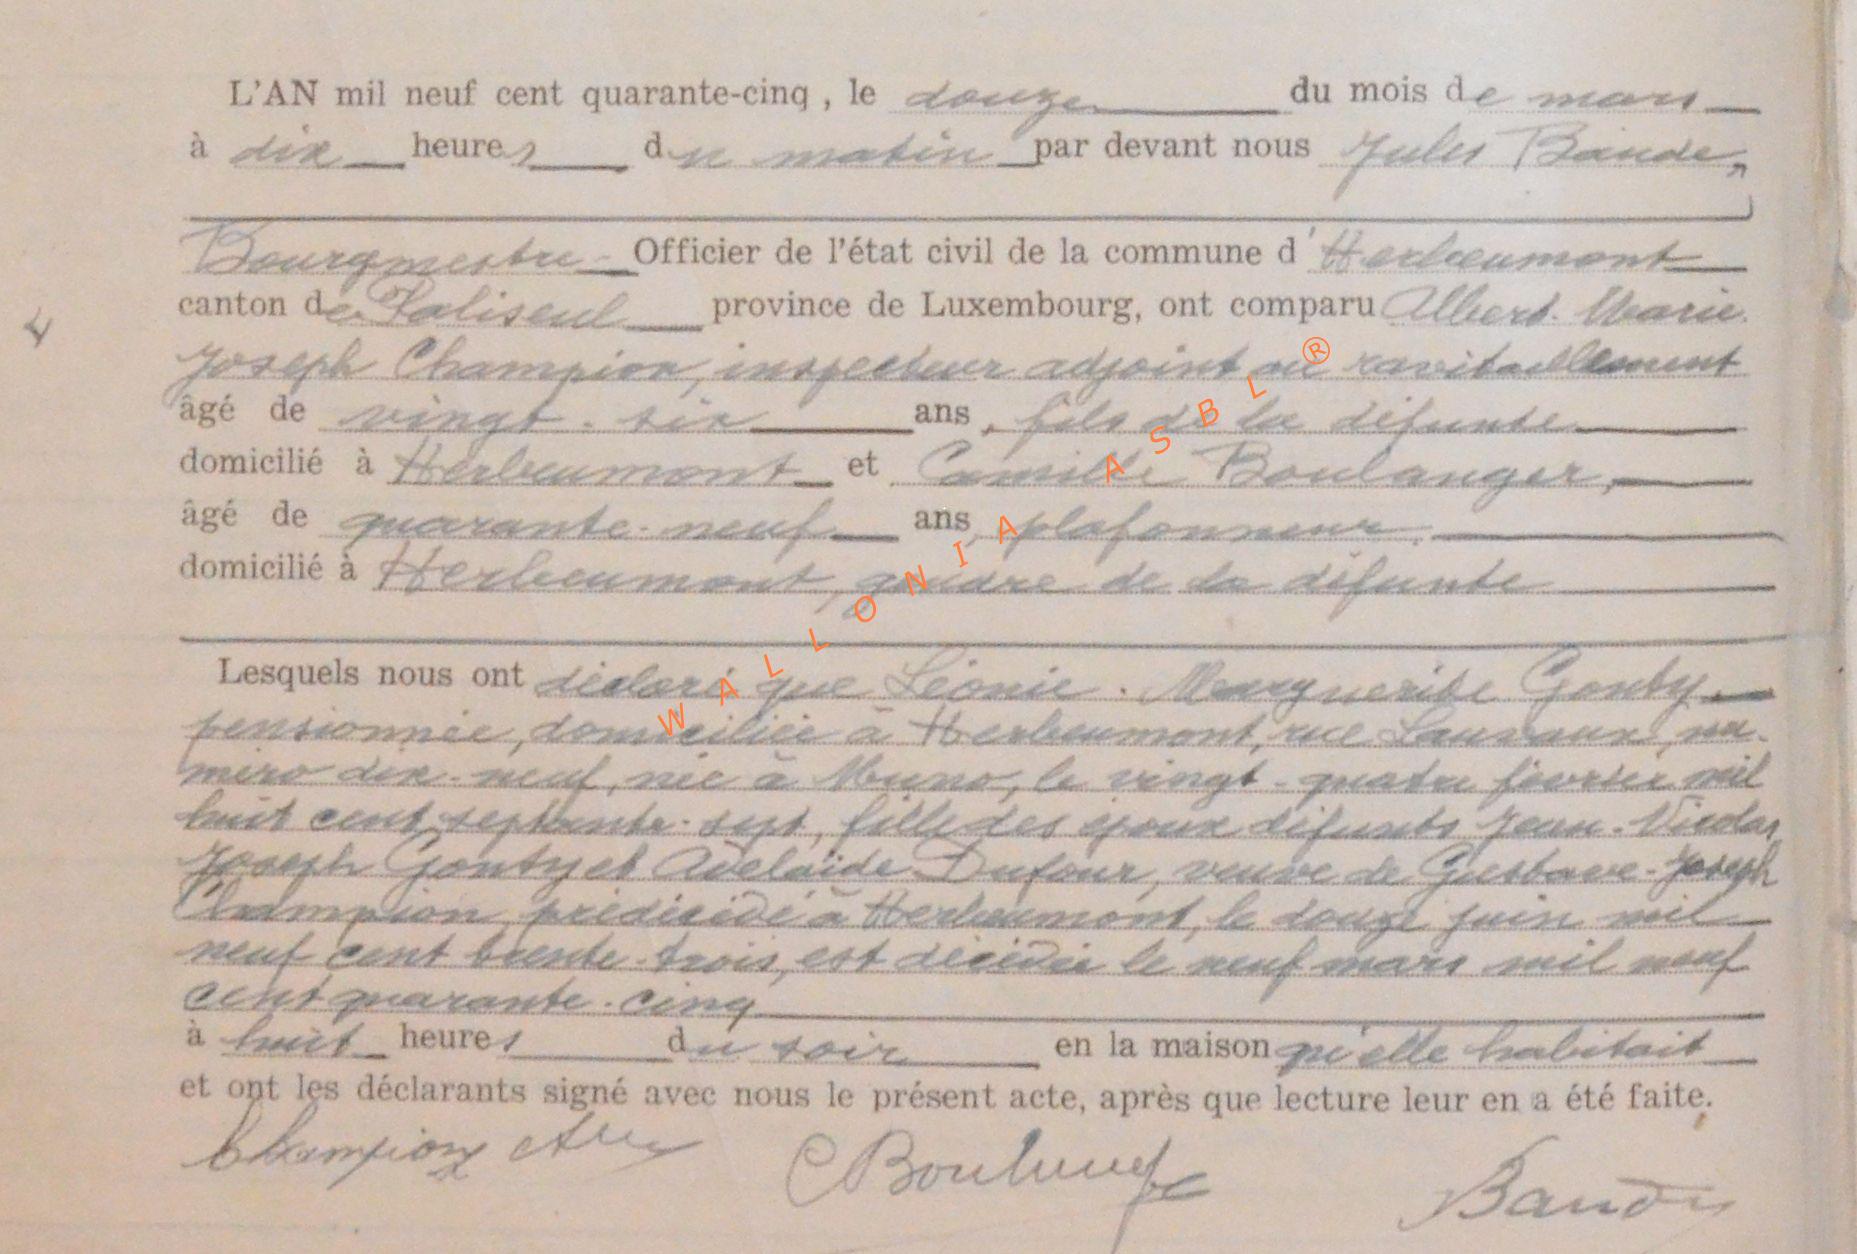 L'AN mil neuf cent quarante-cinq, le douze du mois de mars
à dix heures du matin par devant nous Jules Baude,
Bourgmestre - Officier de l'état civil de la commune d'Herbeumont
canton de Paliseul province de Luxembourg, ont comparu Albert-Marie
Joseph Champion, inspecteur adjoint au ravitaillement
âgé de vingt-six ans, fils de la défunte
domicilié à Herbeumont et Camille Boulanger,
âgé de quarante-neuf ans, plafonneur.
domicilié à Herbeumont, gendre de la défunte
Lesquels nous ont déclaré que Léonie-Marguerite Gonty
pensionnée, domiciliée à Herbeumont, rue Lauvaux, nu-
méro dix-neuf, née à Muno, le vingt-quatre février mil
huit cent septante-sept, fille des époux défunts Jean-Nicolas
Joseph Gonty et Adelaïde Dufour, veuve de Gustave-Joseph
Champion prédécédé à Herbeumont, le douze juin mil
neuf cent trente-trois, est décédée le neuf mars mil neuf
cent quarante-cinq
à huit heures du soir en la maison qu'elle habitait
et ont les déclarants signé avec nous le présent acte, après que lecture leur en a été faite.
Champion C Boulanger Baude
WALLONIA ASBL ®